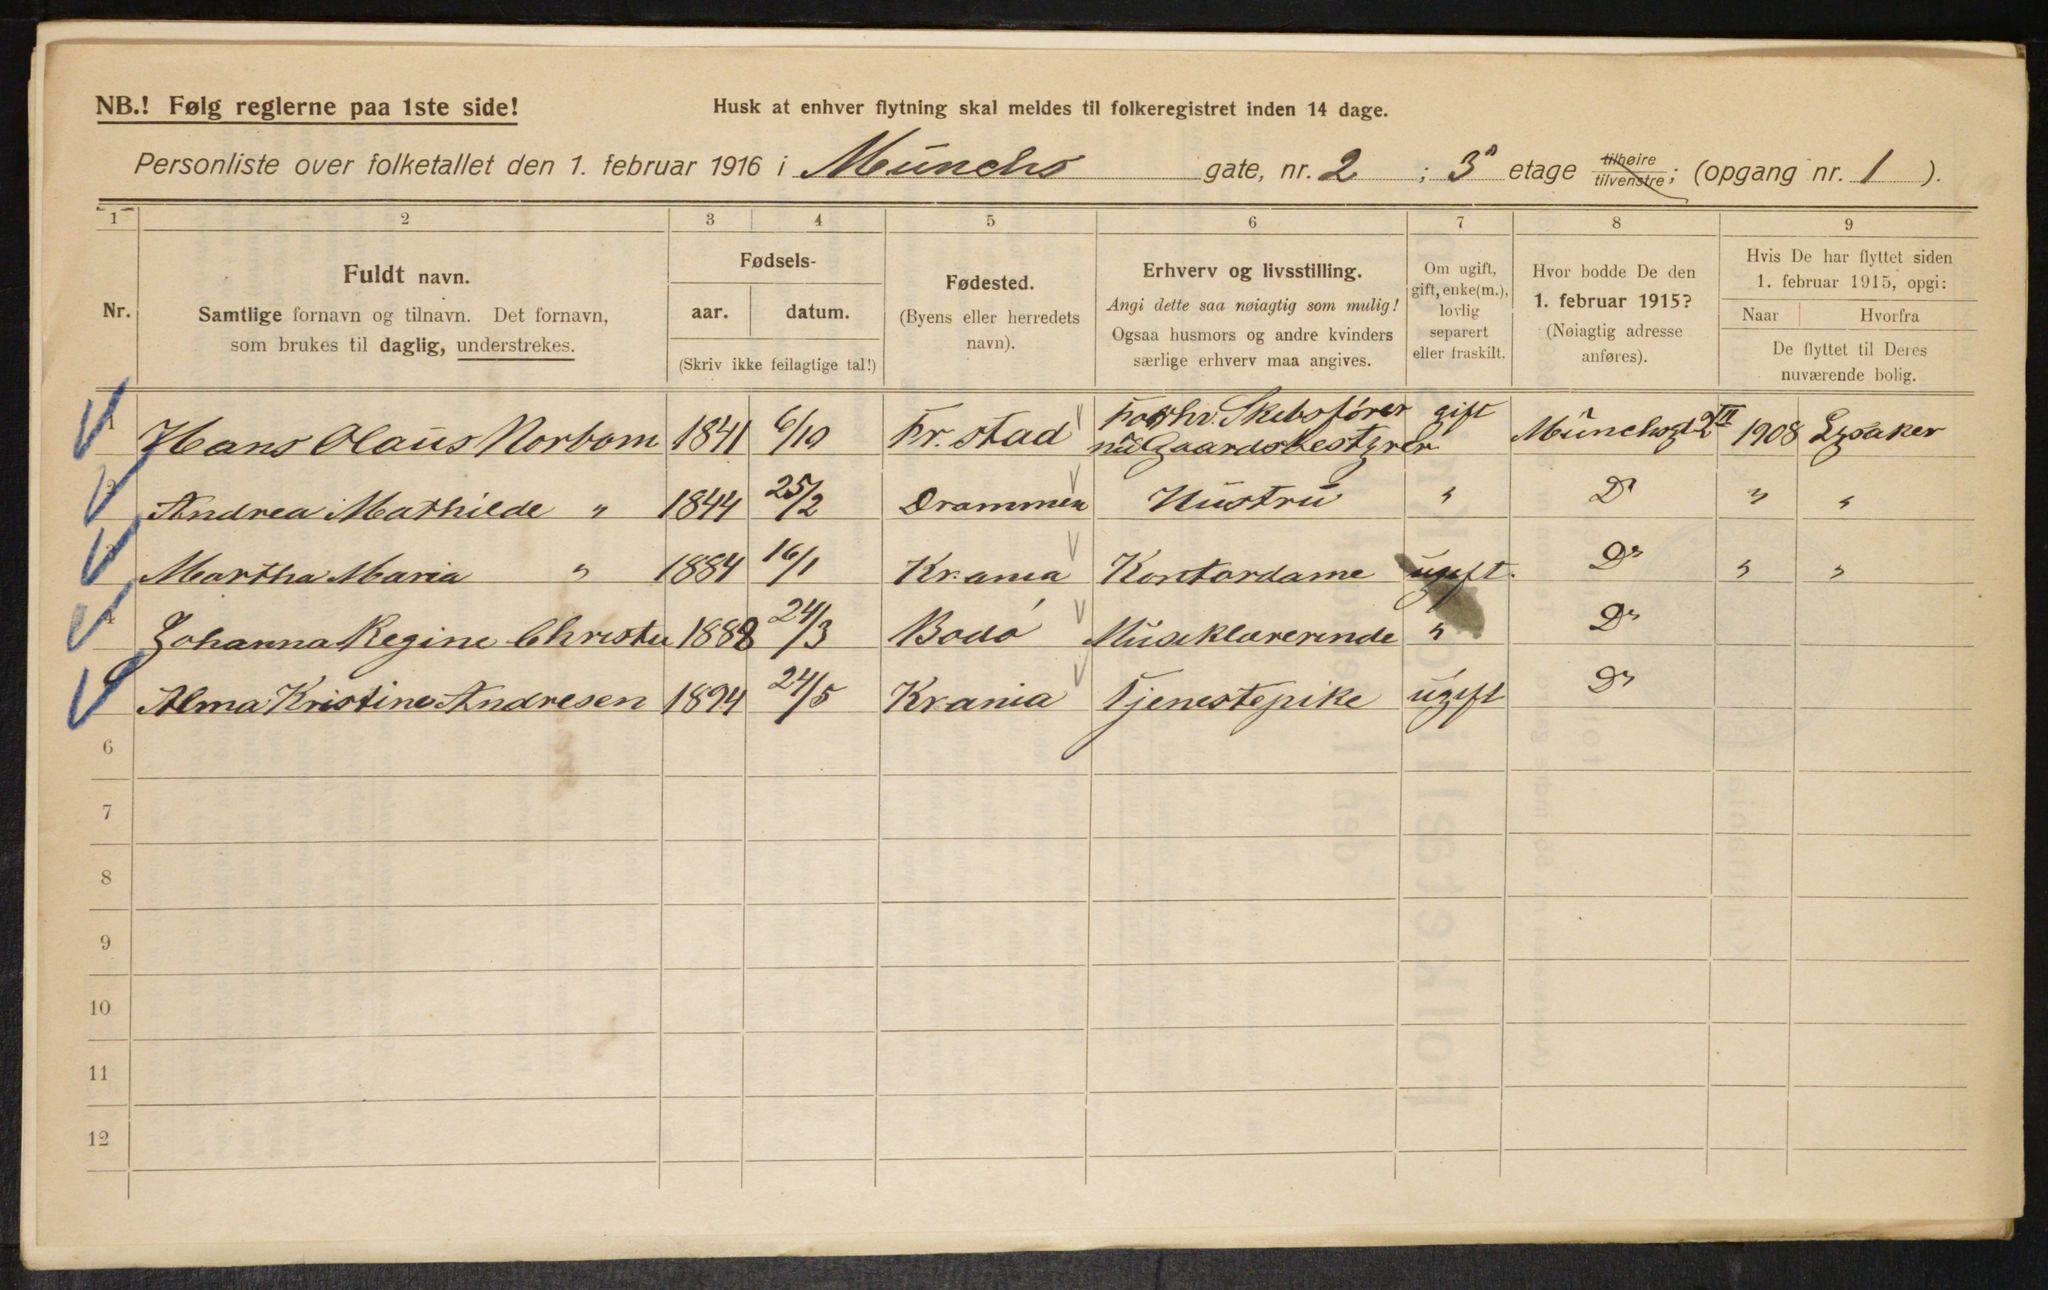 NB.! Følg reglerne paa 1ste side!
Husk at enhver flytning skal meldes til folkeregistret inden 14 dage.
Personliste over folketallet den 1. februar 1916 i Münchs gate, nr. 2 ; 3 etage tilhøire tilvenstre; (opgang nr. 1 ).
1 2 3 4 5 6 7 8 9
Nr.
Fuldt navn.
Samtlige fornavn og tilnavn. Det fornavn,
som brukes til daglig, understrekes.
Fødsels-
aar. datum.
(Skriv ikke feilagtige tal!)
Fødested.
(Byens eller herredets
navn).
Erhverv og livsstilling.
Angi dette saa nøiagtig som mulig!
Ogsaa husmors og andre kvinders
særlige erhverv maa angives.
Om ugift,
gift, enke(m.),
lovlig
separert
eller fraskilt.
Hvor bodde De den
1. februar 1915?
(Nøiagtig adresse
anføres).
Hvis De har flyttet siden
1. februar 1915, opgi:
Naar Hvorfra
De flyttet til Deres
nuværende bolig.
1 Hans Olaüs Norbom 1841 6/10 Fr. stad Forhv. Skibsfører gift Münchsgt 2 III 1908 Lysaker
nü Gaardsbestyrer
2 Andrea Mathilde " 1844 25/2 Drammen Hüstrü " Do " "
3 Martha Maria " 1884 16/1 Kr.ania Kontordame ügift. Do " "
4 Johanna Regine Christie 1888 24/3 Bodó Müsiklærerinde " Do
Alma Kristine Andresen 1894 24/5 Kr.ania Tjenestepike ügift Do
6
7
8
9
10
11
12